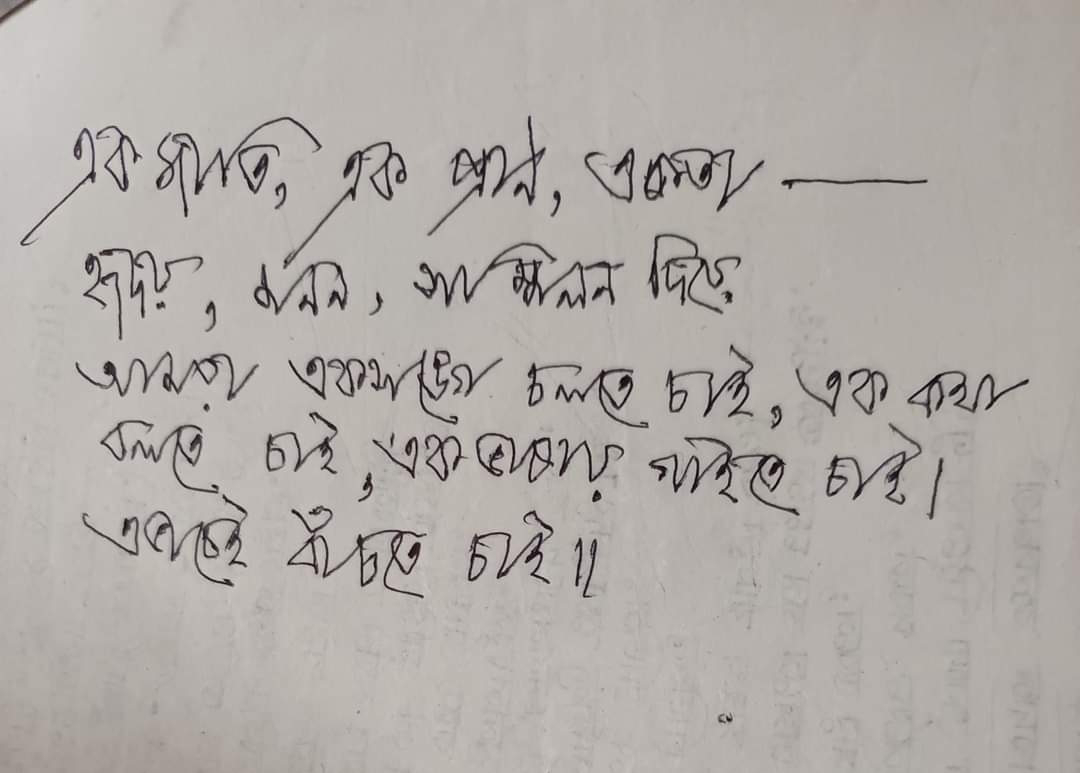 এক জাতি, এক প্রাণ, একতা —
হৃদয়, মনন, সম্মিলন দিয়ে
আমরা একসঙ্গে চলতে চাই, এক কথা
বলতে চাই, এক ভাষায় গাইতে চাই।
চাই॥